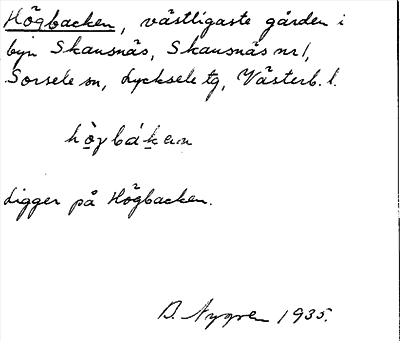 Högbacken, västligaste gården i
byn Skansnäs, Skansnäs nr 1,
Sorsele sn, Lycksele tg, Västerb. l.
hò̱gbáḵen
Ligger på Högbacken.
D. Nygren 1935.